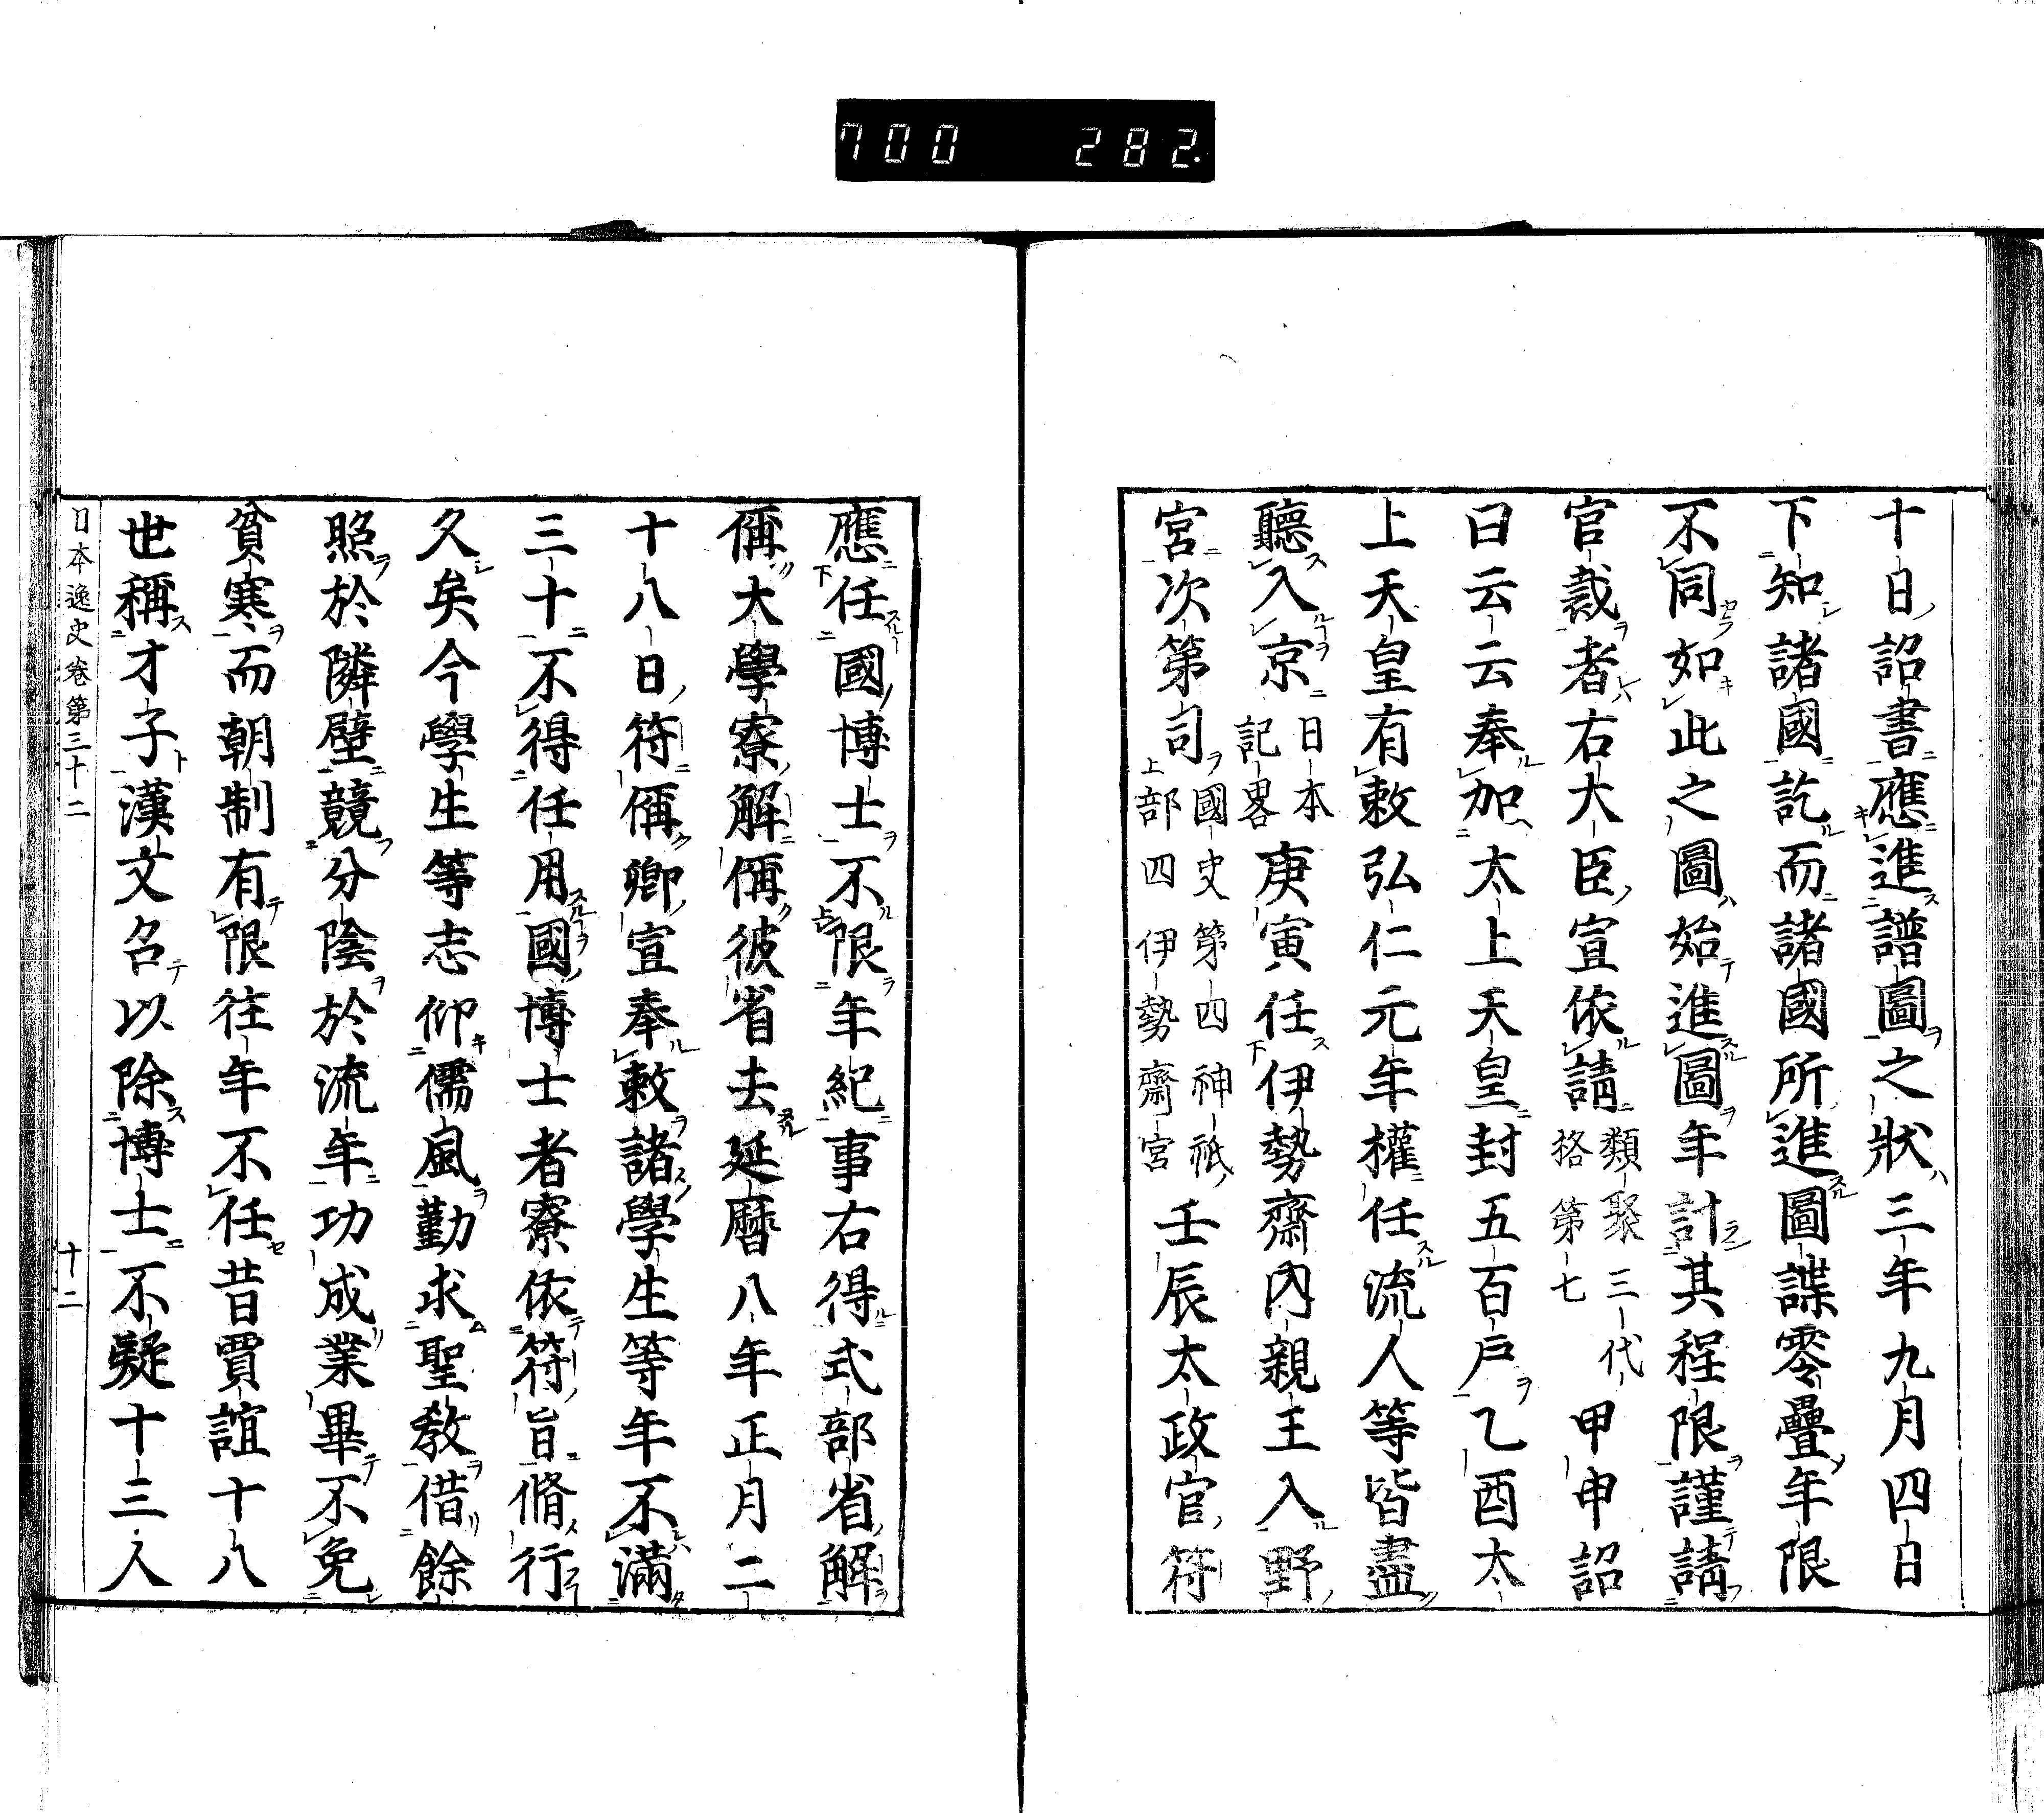 700 282.
十日詔書應進譜圖之狀三年九月四日
下知諸國訖而諸國所進圖諜零疊年限
不同如此之圖始進圖年計其程限謹請
官裁者右大臣宣依請類聚三代格第七甲申詔
曰云云奉加太上天皇封五百戶乙酉太
上天皇有敕弘仁元年權任流人等皆盡
聽入京日本記畧庚寅任伊勢齋內親王入野
宮次第司國史第四神祇上部四伊勢齋宮壬辰太政官符
應任國博士不限年紀事右得式部省解
偁大學寮解偁彼省去延曆八年正月二
十八日符偁卿宣奉敕諸學生等年不滿
三十不得任用國博士者寮依符旨脩行
久矣今學生等志仰儒風勤求聖教借餘
照於隣壁競分陰於流年功成業畢不免
貧寒而朝制有限往年不任昔賈誼十八
世稱才子漢文召以除博士不疑十三人
日本逸史卷第三十二 十二